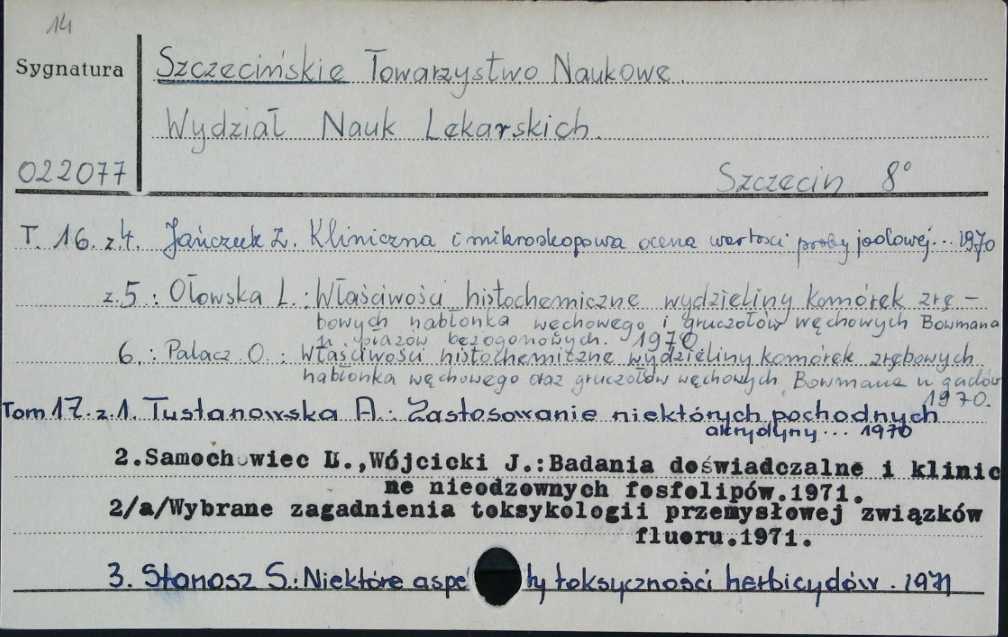 14
Sygnatura
Szczecińskie Towarzystwo Naukowe
Wydział Nauk Lekarskich.
022077
Szczecin 8°
T. 16. z.4. Jańczuk Z. Kliniczna i mikroskopowa ocena wartości próby jodowej... 1970
z.5: Ołowska L.: Właściwości histochemiczne wydzieliny komórek zrę-
bowych nabłonka węchowego i gruczołów węchowych Bowmana
u płazów bezogonowych. 1970
6.: Palacz O.: Właściwości histochemiczne wydzieliny komórek zrębowych
nabłonka węchowego oraz gruczołów węchowych Bowmana u gadów
1970.
Tom 17. z.1. Tustanowska A.: Zastosowanie niektórych pochodnych
akrydyny... 1970
2.Samochowiec L.,Wójcicki J.:Badania doświadczalne i klinic
ne nieodzownych fosfolipów.1971.
2/a/Wybrane zagadnienia toksykologii przemysłowej związków
fluoru.1971.
3. Stanosz S.: Niektóre aspekty toksyczności herbicydów. 1971